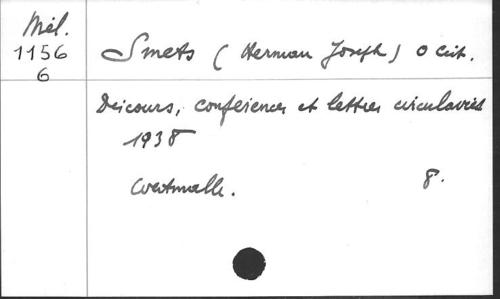 Mél.
1156
6
Smets (Herman Joseph) O Cist.
Discours, conférences et lettres circulaires
1938
Westmalle.
8.